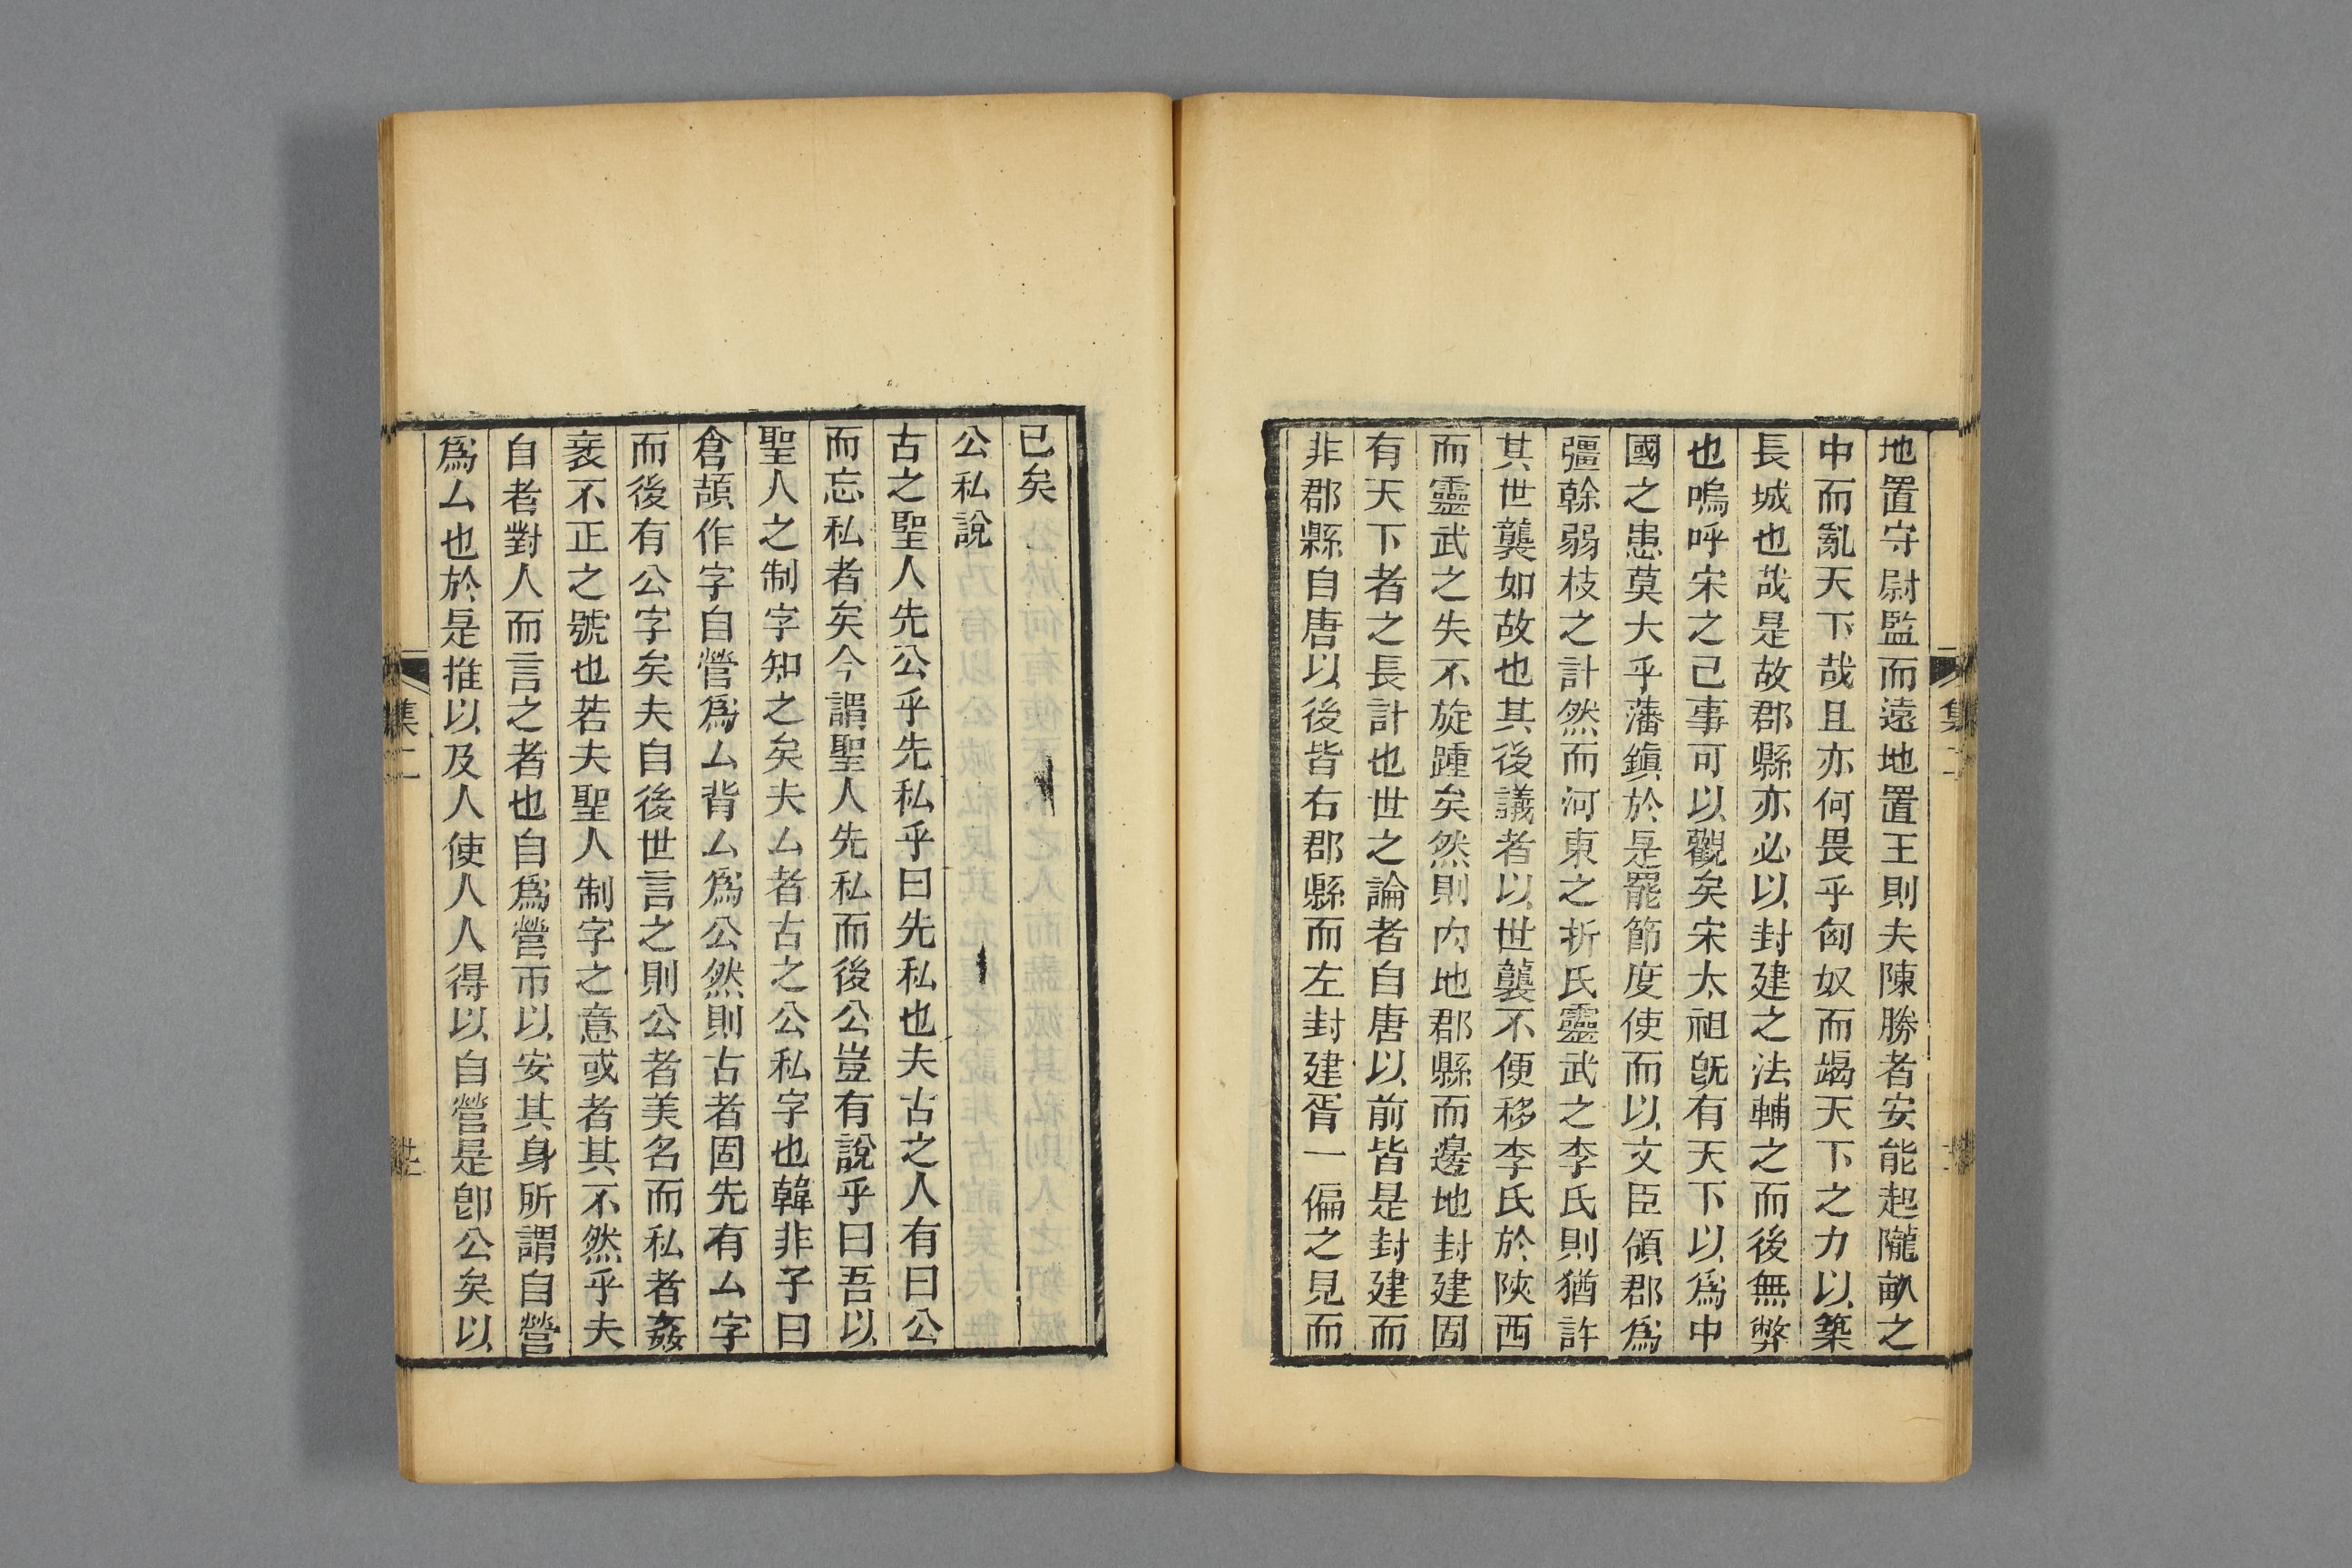 地置守尉監而遠地置王則夫陳勝者安能起隴畝之
中而亂天下哉且亦何畏乎匈奴而竭天下之力以築
長城也哉是故郡縣亦必以封建之法輔之而後無弊
也嗚呼宋之己事可以觀矣宋太祖旣有天下以爲中
國之患莫大乎藩鎭於是罷節度使而以文臣領郡爲
彊榦弱枝之計然而河東之折氏靈武之李氏則猶許
其世襲如故也其後議者以世襲不便移李氏於陝西
而靈武之失不旋踵矣然則內地郡縣而邊地封建固
有天下者之長計也世之論者自唐以前皆是封建而
非郡縣自唐以後皆右郡縣而左封建胥一偏之見而
已矣
公私說
古之聖人先公乎先私乎曰先私也夫古之人有曰公
而忘私者矣今謂聖人先私而後公豈有說乎曰吾以
聖人之制字知之矣夫厶者古之公私字也韓非子曰
倉頡作字自營爲厶背厶爲公然則古者固先有厶字
而後有公字矣夫自後世言之則公者美名而私者姦
衺不正之號也若夫聖人制字之意或者其不然乎夫
自者對人而言之者也自爲營帀以安其身所謂自營
爲厶也於是推以及人使人人得以自營是卽公矣以
集二